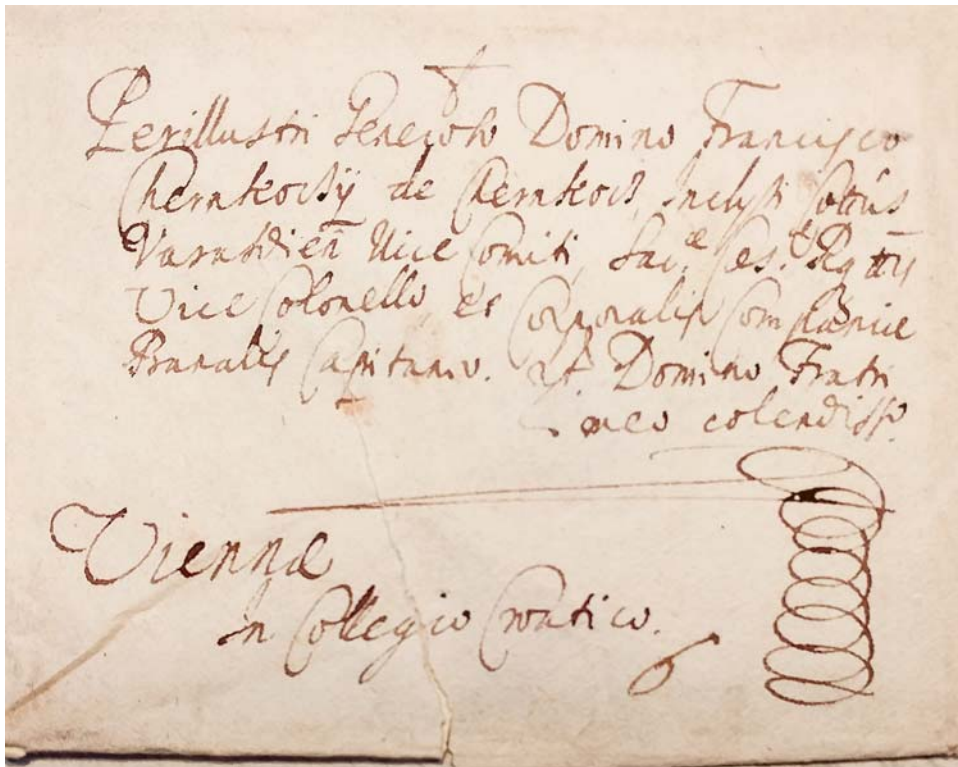 Perillustri Generoso Domino Francisco
Chernkoczÿ de Chernkocz, Inclyti Cottûs
Varasdien̄ Vice Comiti, Sac.ae Ces.ae Reg
Vice Colonello, et Corporalis Companiae
Banalis Capitaneo. Domino Fratri
meo colendiss.
Viennæ
in Collegio Croatico.